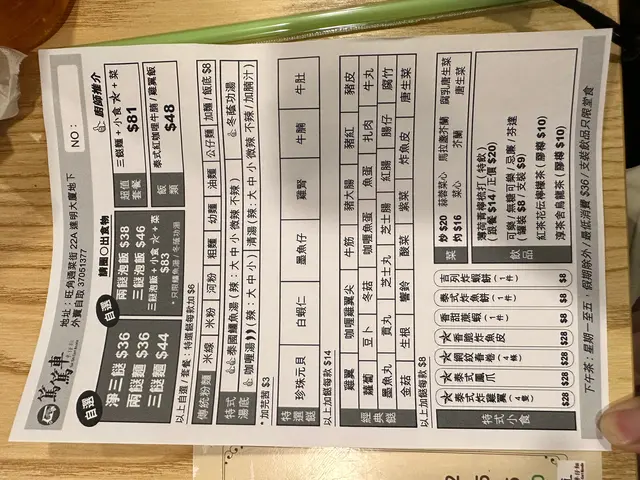 車
地址：旺角通菜街 22A 達明大廈地下
外賣自取 37051377
NO：
自選
淨三餸 $36
兩餸麵 $36
三餸麵 $44
自選
請圈○出食物
兩餸泡飯 $38
三餸泡飯 $46
三餸泡飯 + 小食 ★ + 菜
$83
超值套餐
三餸麵 + 小食 ★ + 菜
$81
飯類
泰式紅咖喱牛腩 / 雞翼飯
$48
廚師推介
以上自選 / 套餐：特選餸每款加 $6
傳統粉麵
米線
米粉
河粉
粗麵
幼麵
油麵
公仔麵
加麵 / 飯底 $8
特式湯底
泰國鱷魚湯 (辣：大 中 小 微辣 不辣)
冬蔭功湯
咖喱湯 (辣：大 中 小)
清湯 (辣：大 中 小 微辣 不辣 / 加腩汁)
*加芫茜 $3
特選餸
珍珠元貝
白蝦仁
墨魚仔
雞腎
牛腩
牛肚
以上加餸每款 $14
經典餸
雞翼
咖喱雞翼尖
牛筋
豬大腸
豬紅
豬皮
蘿蔔
豆卜
冬菇
咖喱魚蛋
魚蛋
扎肉
牛丸
墨魚丸
貢丸
芝士丸
芝士腸
紅腸
腸仔
腐竹
金菇
生根
響鈴
酸菜
紫菜
炸魚皮
唐生菜
以上加餸每款 $8
特式小食
★ 泰式炸雞翼 (4隻) $28
★ 泰式鳳爪 $28
★ 網紋春卷 (4條) $28
★ 香脆炸魚皮 $28
香甜蔗蝦 (1件) $8
泰式炸魚餅 (1件) $8
吉列炸蝦餅 (1件) $8
菜
炒 $20 蒜蓉菜心 馬拉盞芥蘭 腐乳唐生菜
灼 $16 菜心 芥蘭 唐生菜
飲品
薄荷青檸梳打 (特飲)
(跟餐 $14 / 正價 $20)
可樂 / 無糖可樂 / 忌廉 / 芬達
(罐裝 $8 / 支裝 $9)
紅茶花伝檸檬茶 (膠樽 $10)
淳茶舍烏龍茶 (膠樽 $10)
下午茶：星期一至五，假期除外 / 最低消費 $36 / 支裝飲品只限堂食